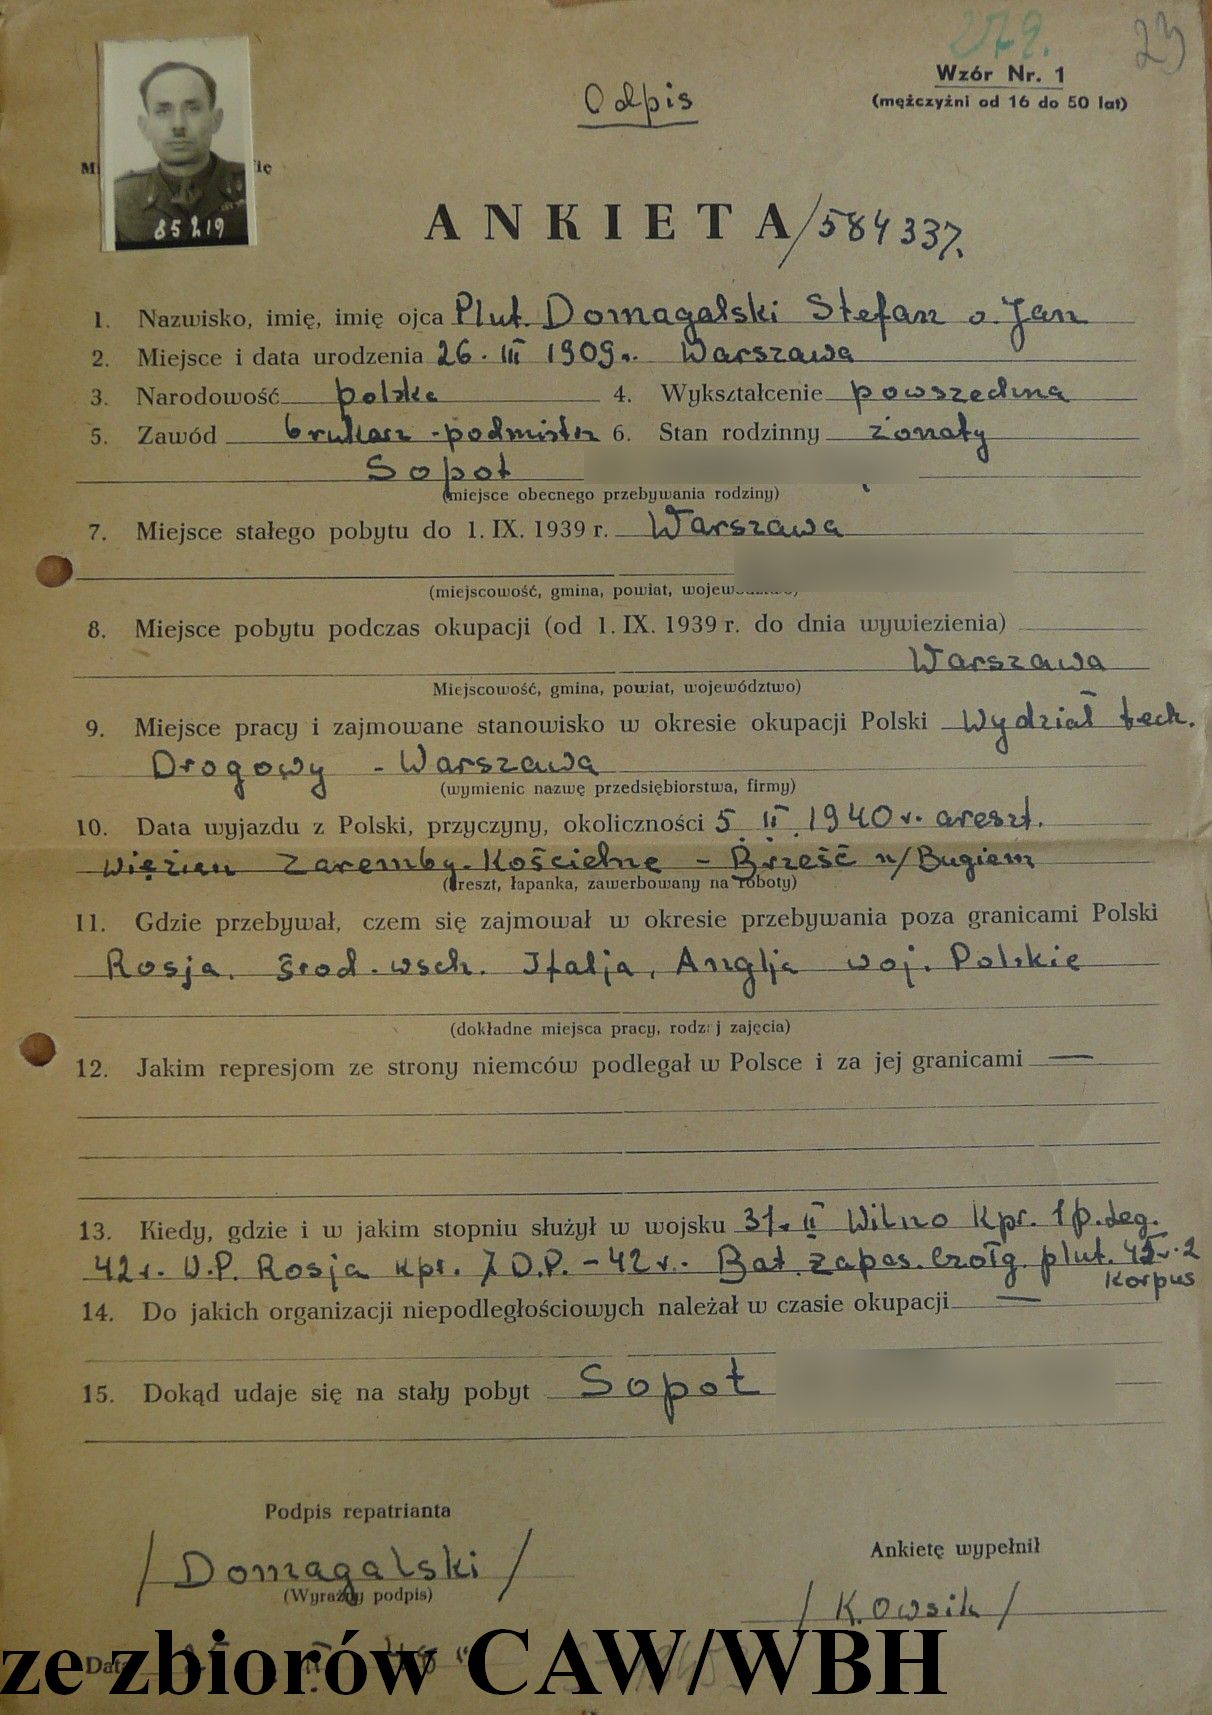 279.
23
Wzór Nr. 1
(mężczyźni od 16 do 50 lat)
Odpis
85219
ANKIETA/584337.
1. Nazwisko, imię, imię ojca Plut. Domagalski Stefan o. Jan
2. Miejsce i data urodzenia 26. III 1909 r. Warszawa
3. Narodowość polska 4. Wykształcenie powszechna
5. Zawód brukarz - podmistrz 6. Stan rodzinny żonaty
Sopot
(miejsce obecnego przebywania rodziny)
7. Miejsce stałego pobytu do 1. IX. 1939 r. Warszawa
(miejscowość, gmina, powiat, województwo)
8. Miejsce pobytu podczas okupacji (od 1. IX. 1939 r. do dnia wywiezienia)
Warszawa
Miejscowość, gmina, powiat, województwo)
9. Miejsce pracy i zajmowane stanowisko w okresie okupacji Polski Wydział tech.
Drogowy - Warszawa
(wymienic nazwę przedsiębiorstwa, firmy)
10. Data wyjazdu z Polski, przyczyny, okoliczności 5 II 1940 r. areszt.
więzien Zaremby-Kościelne - Brześć n/Bugiem
(areszt, łapanka, zawerbowany na roboty)
11. Gdzie przebywał, czem się zajmował w okresie przebywania poza granicami Polski
Rosja. środ. wsch. Italja, Anglja woj. Polskie
(dokładne miejsca pracy, rodzaj zajęcia)
12. Jakim represjom ze strony niemców podlegał w Polsce i za jej granicami —
13. Kiedy, gdzie i w jakim stopniu służył w wojsku 31. II Wilno kpr. 1 p. leg.
42 r. W.P. Rosja kpr. 7 D.P. - 42 r. Bat. zapas. czołg. plut. 45 r. 2
Korpus
14. Do jakich organizacji niepodległościowych należał w czasie okupacji —
15. Dokąd udaje się na stały pobyt Sopot
Podpis repatrianta
/Domagalski/
(Wyraźny podpis)
Ankietę wypełnił
/K. Owsik/
Data
ze zbiorów CAW/WBH